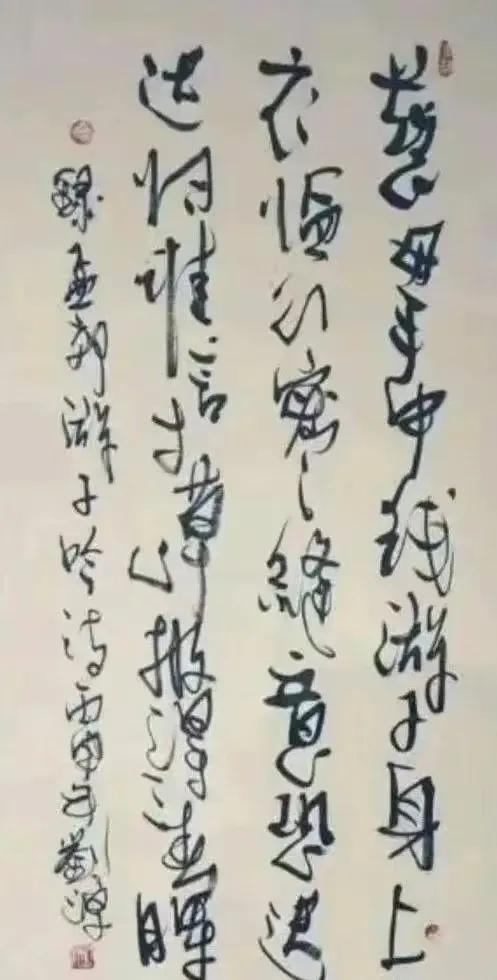 慈母手中线游子身上
衣临行密密缝意恐迟
迟归谁言寸草心报得三春晖
录孟郊游子吟诗丙申年劉